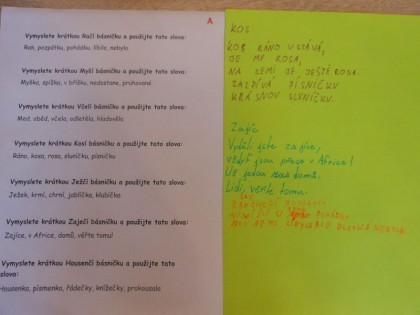 A
Vymyslete krátkou Račí básničku a použijte tato slova:
Rak, pozpátku, pohádku, líbilo, nebylo
Vymyslete krátkou Myší básničku a použijte tato slova:
Myška, spížka, v bříšku, nedostane, pruhované
Vymyslete krátkou Včelí básničku a použijte tato slova:
Med, sběd, včela, odlétěla, hladověla
Vymyslete krátkou Kosí básničku a použijte tato slova:
Ráno, kosa, rosa, sluníčku, písničku
Vymyslete krátkou Ježčí básničku a použijte tato slova:
Ježek, krmí, chrní, jablíčka, klubíčka
Vymyslete krátkou Zaječí básničku a použijte tato slova:
Zajíce, v Africe, domů, věřte tomu!
Vymyslete krátkou Housenčí básničku a použijte tato
slova:
Housenka, písmenka, řádečky, knížečky, prokousala
KOS
KOS RÁNO VSTÁVÁ,
JE MU ROSA,
NA ZEMI JE JEŠTĚ ROSA.
ZAZPÍVÁ PÍSNIČKU
KRÁSNOU SLUNÍČKU.
Zajíc
Viděli jste zajíce,
vždyť jsou přece v Africe!
Už jedou domů.
Lidi, věřte tomu.